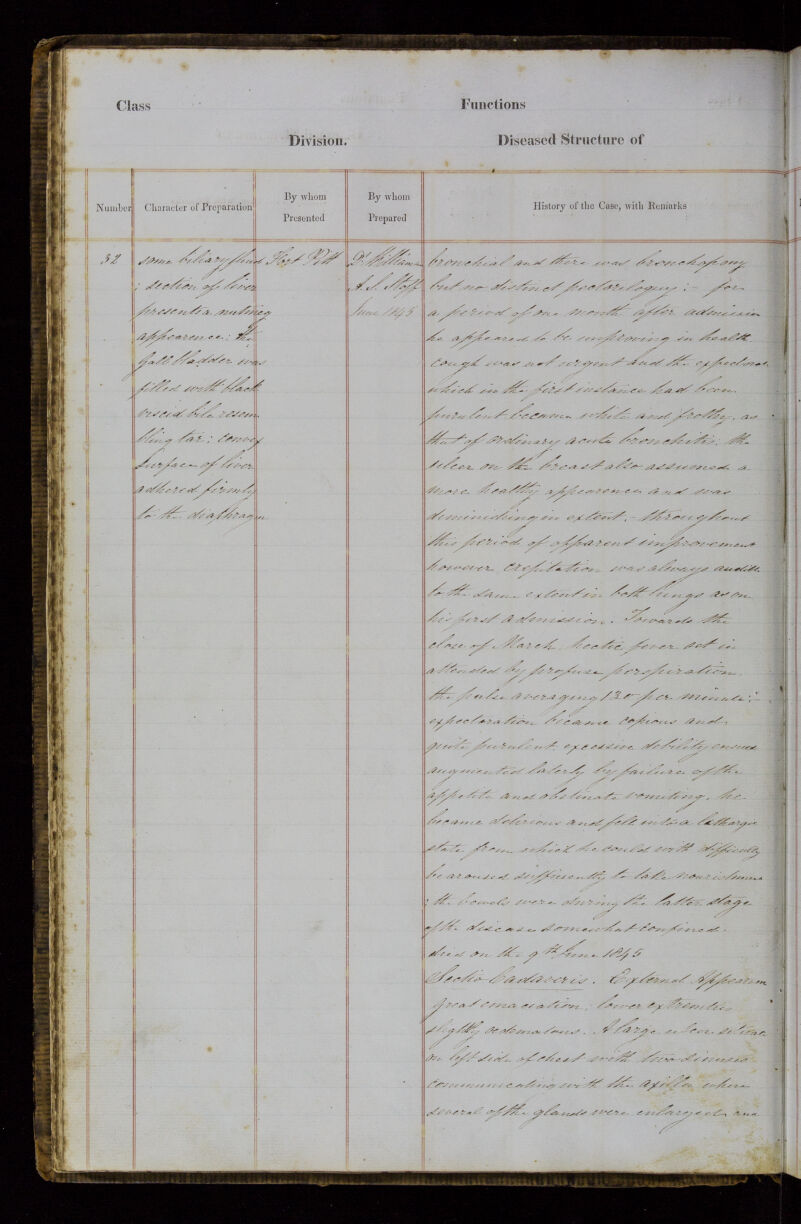 Class
Functions
Division.
Diseased Structure of
Number
Character of Preparation
By whom
Presented
By whom
Prepared
History of the Case, with Remarks
32
some biliary fluid
: section of liver
presents a nutmeg
appearance: the
Gall bladder was
filled with black
viscid bile resem
bling tar: convex
surface of liver
adhered firmly
to the diaphragm
Fort Pitt
Dr
A. S. Staff
June 1845
bronchial and there was bronchophony
but no distinct pectoriloquy :- for
a period of one month after admission
he appeared to be improving in health
cough was not urgent and the expectorat
which in the first instance had been
purulent became white and frothy, as
that of ordinary acute bronchitis; the
ulcer on the breast also assumed a
more healthy appearance and was
diminishing in extent. - throughout
this period of apparent improvement
however crepitation was always audible
to the same extent in both lungs as on
his first admission. Towards the
close of March hectic fever set in
attended by profuse perspiration
the pulse averaging 130 per minute :-
expectoration became copious and
quite purulent, excessive debility ensued
augmented laterly by failure of the
appetite and obstinate vomiting. he
became delirious and fell into a lethargic
state from which he could with difficulty
be aroused sufficiently to take nourishment
: the bowels were during the latter stage
of the disease somewhat confined.
died on the 9th June 1845
Sectio Cadaveris. External Appearan
great emaciation, lower extremities
slightly oedematous. A large ulcer situate
on left side of chest with two sinuses
communicating with the axilla where
several of the glands were enlarged and